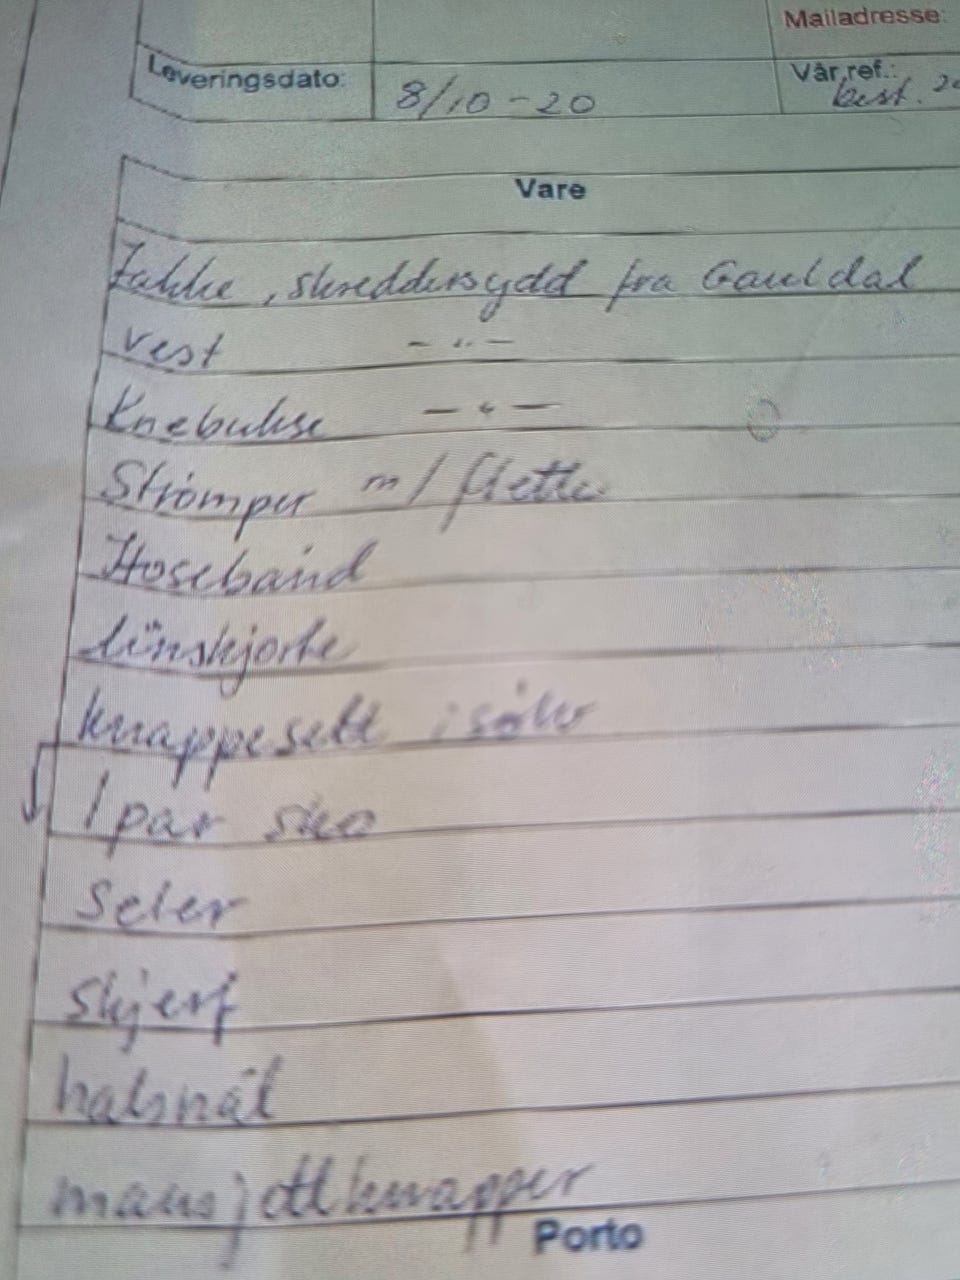 Mailadresse:
Leveringsdato: 8/10-20 Vår ref.: best. 20
Vare
Jakke, skreddersydd fra Gauldal
Vest - " -
Knebukse - " -
Strømper m/ flette
Hosebånd
linskjorte
knappesett i sølv
1 par sko
Seler
skjerf
halsnål
mansjettknapper
Porto